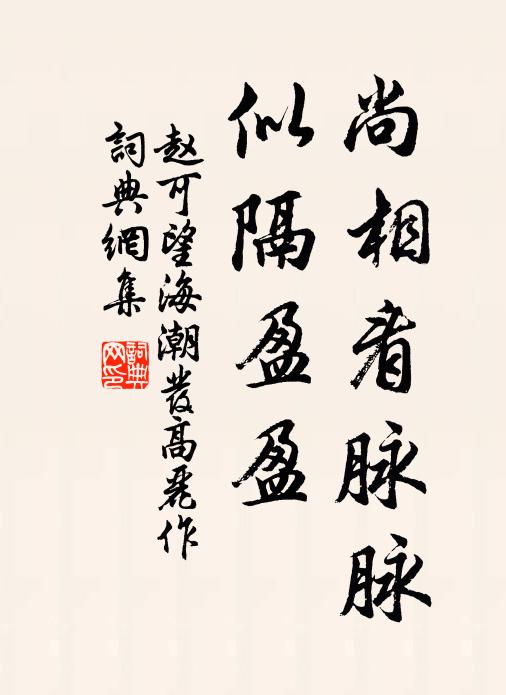 尚相看脉脉
似隔盈盈
赵可望海潮發高麗作
詞典網集
詞典
网印